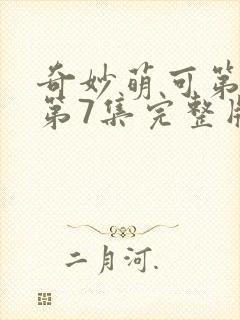 奇妙萌可第
第7集完整版
二月河.